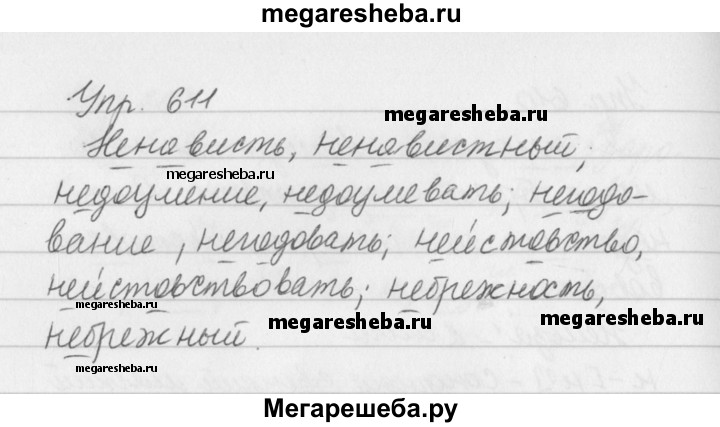 megaresheba.ru
Упр. 611
megaresheba.ru
Ненависть, ненавистный;
megaresheba.ru
недоумение, недоумевать; негодо-
вание, негодовать; неистовство,
неистовствовать; небрежность,
megaresheba.ru
megaresheba.ru
megaresheba.ru
небрежный.
Мегарешеба.ру